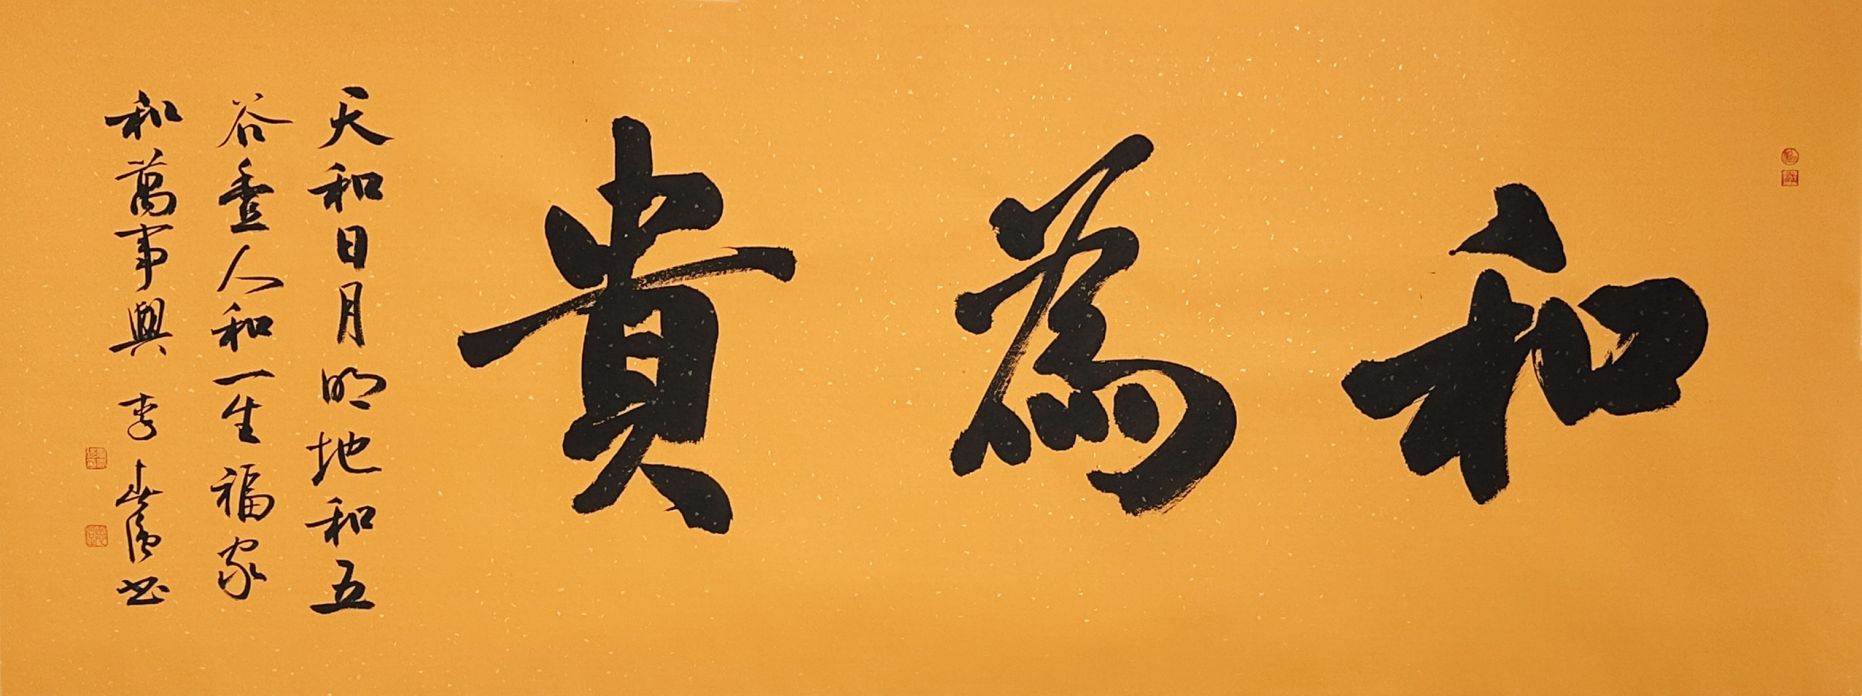 和為貴
天和日月明地和五
谷豊人和一生福家
和萬事興 李 书